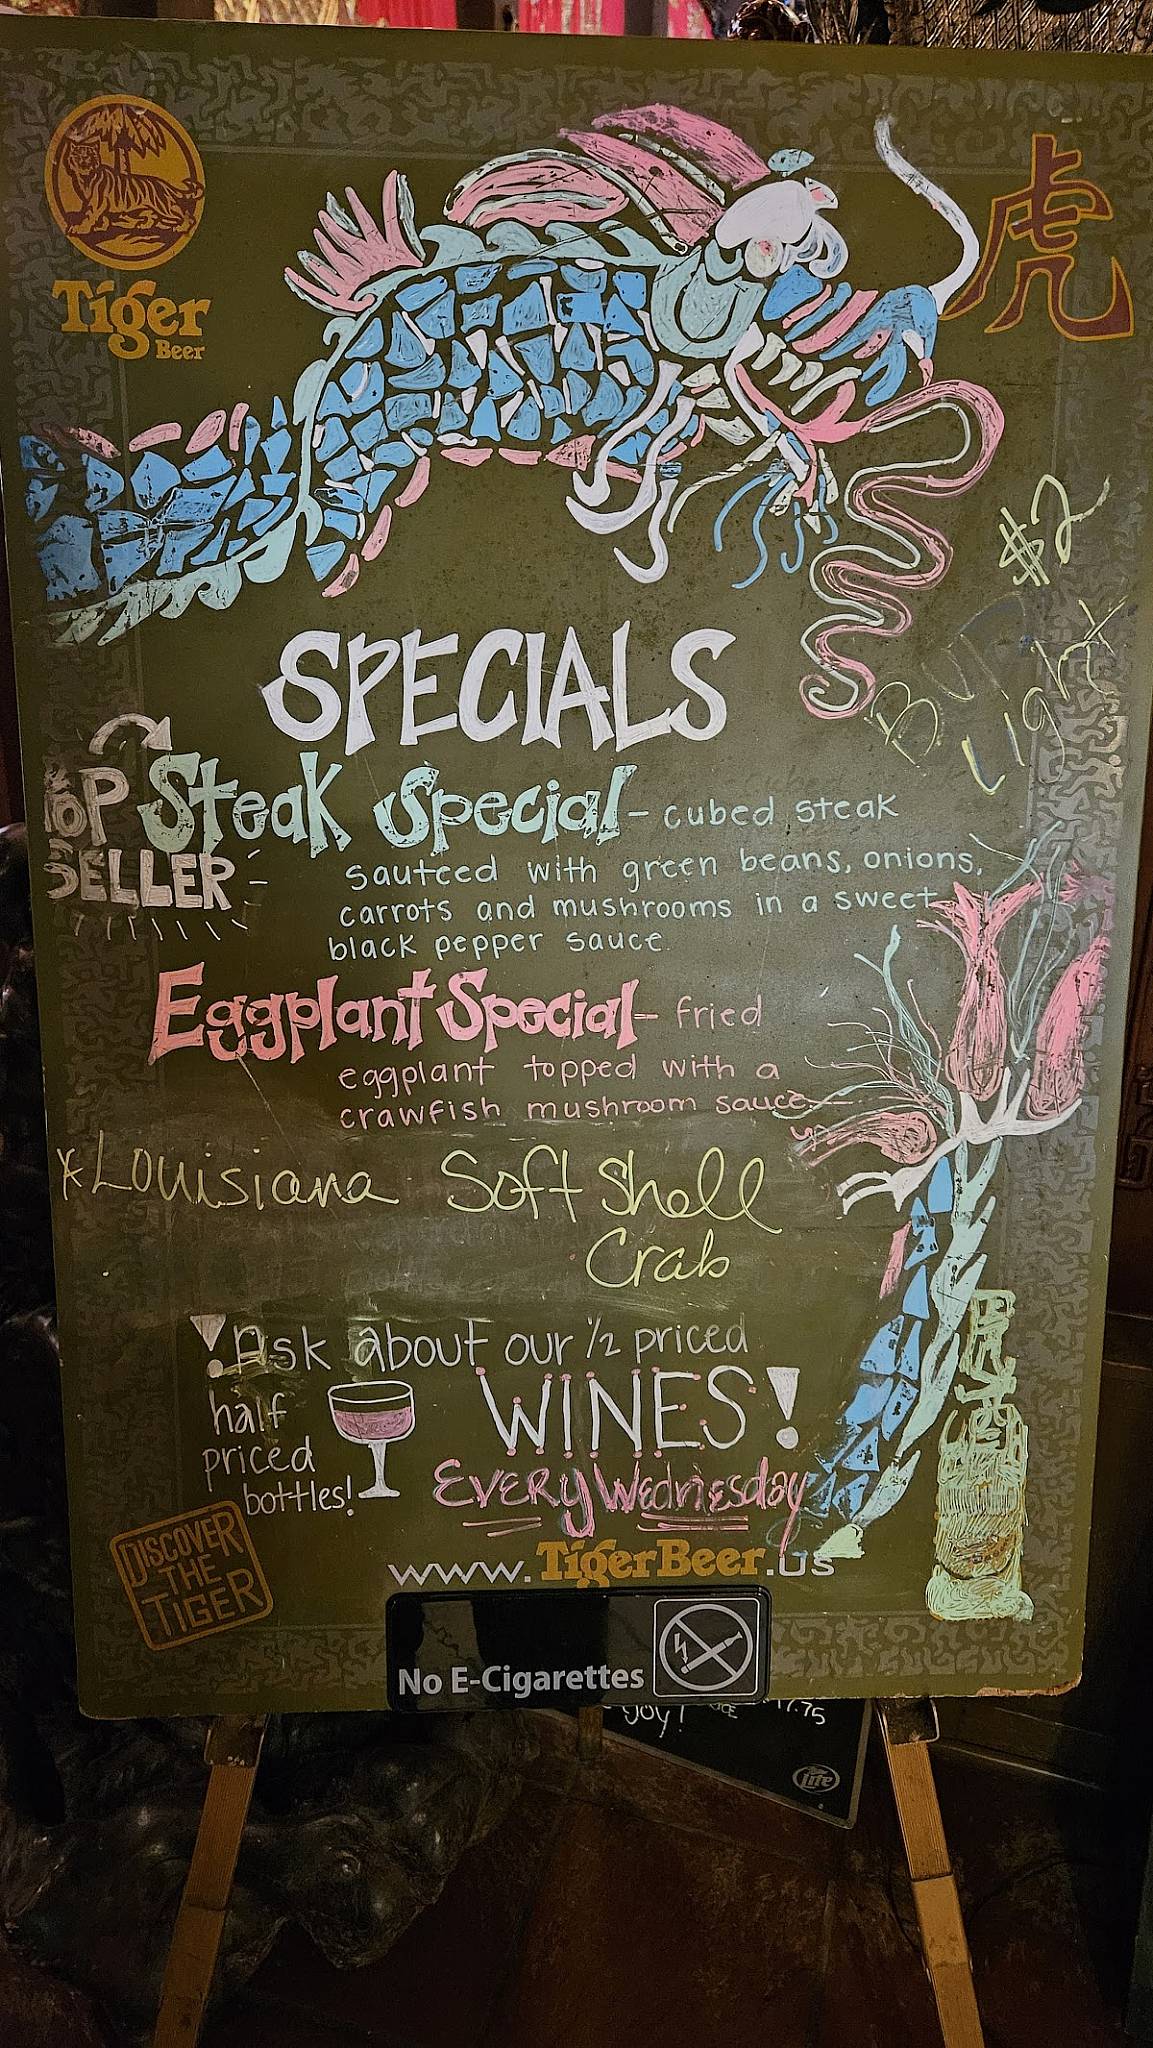 Tiger
Beer
虎
$2
Bud
Light
SPECIALS
TOP
SELLER
Steak Special - cubed steak
sauteed with green beans, onions,
carrots and mushrooms in a sweet
black pepper sauce.
Eggplant Special - fried
eggplant topped with a
crawfish mushroom sauce.
*Louisiana Soft Shell
Crab
! Ask about our 1/2 priced
WINES!
half
priced
bottles!
Every Wednesday
DISCOVER
THE
TIGER
www.TigerBeer.us
No E-Cigarettes
joy!
17.75
Lite